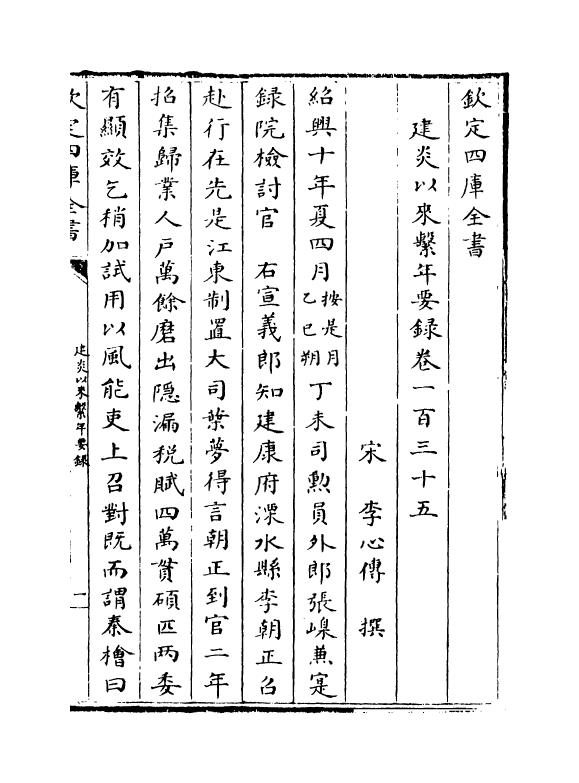 欽定四庫全書
建炎以來繫年要録卷一百三十五
宋　李心傳　撰
紹興十年夏四月按是月乙巳朔丁未司勲員外郎張嵲兼寔
録院檢討官　右宣義郎知建康府溧水縣李朝正召
赴行在先是江東制置大司葉夢得言朝正到官二年
招集歸業人戶萬餘磨出隠漏税賦四萬貫碩匹兩委
有顯效乞稍加試用以風能吏上召對既而謂秦檜曰
欽定四庫全書
建炎以來繫年要録